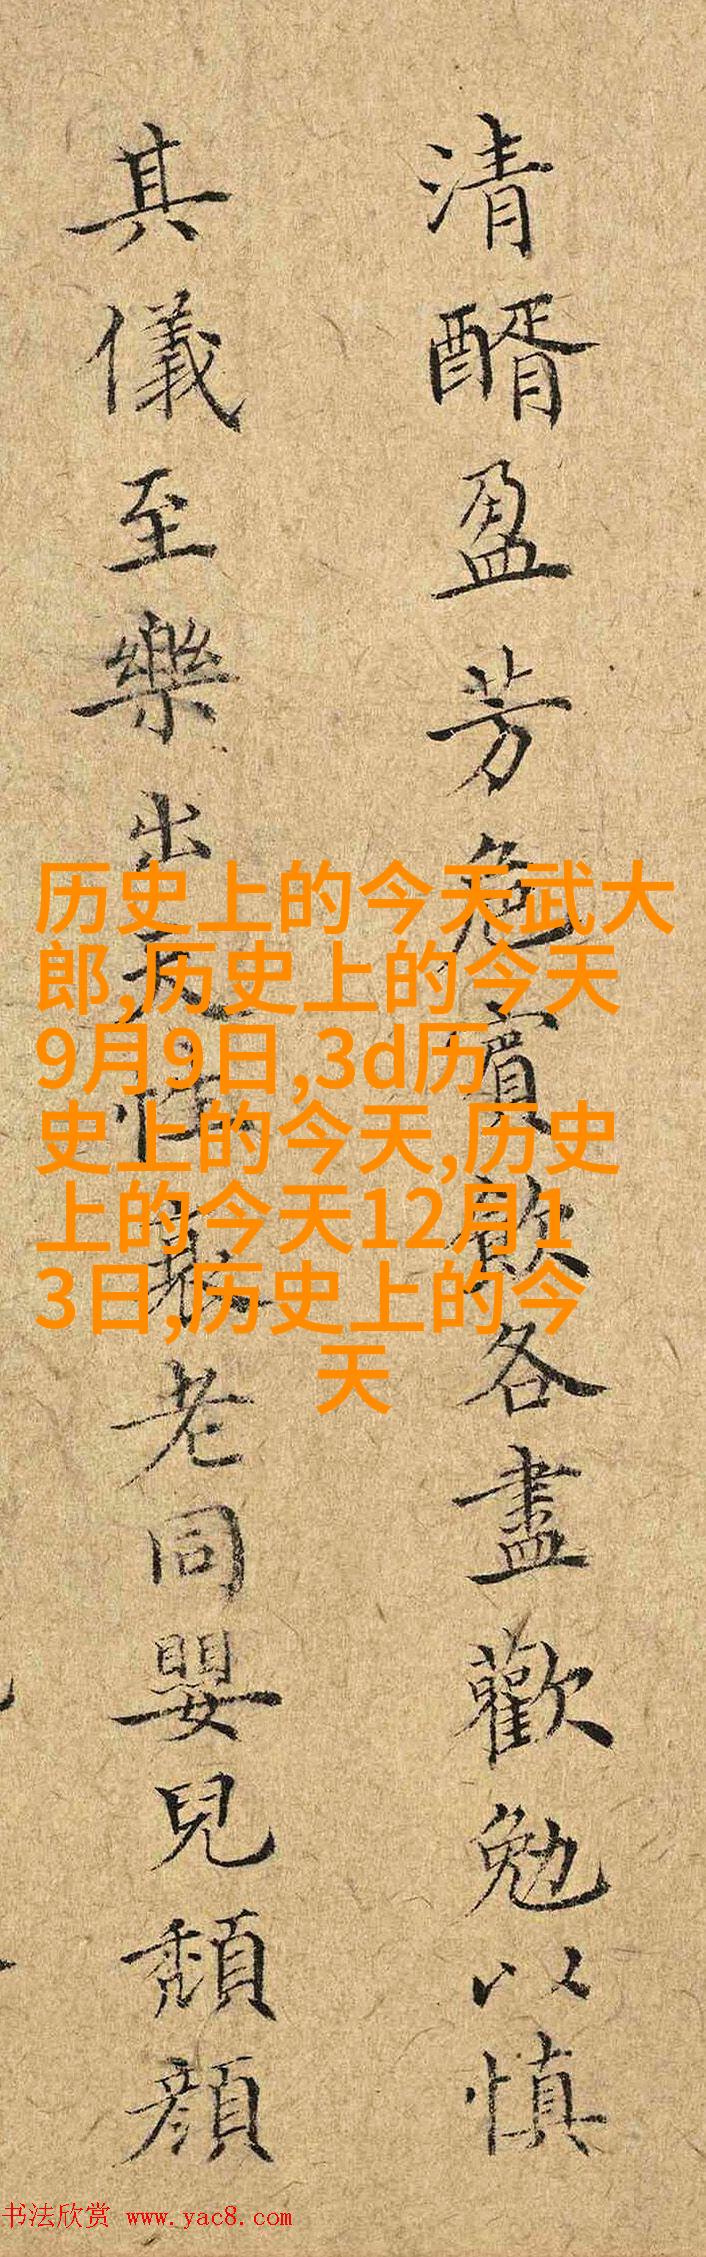 清醑盈芳卮賓飲各盡歡勉以慎
其儀至樂出天性衰老同嬰兒頹顏
历史上的今天武大
郎,历史上的今天
9月9日,3d历
史上的今天,历史
上的今天12月1
3日,历史上的今
天
书法欣赏 www.yac8.com